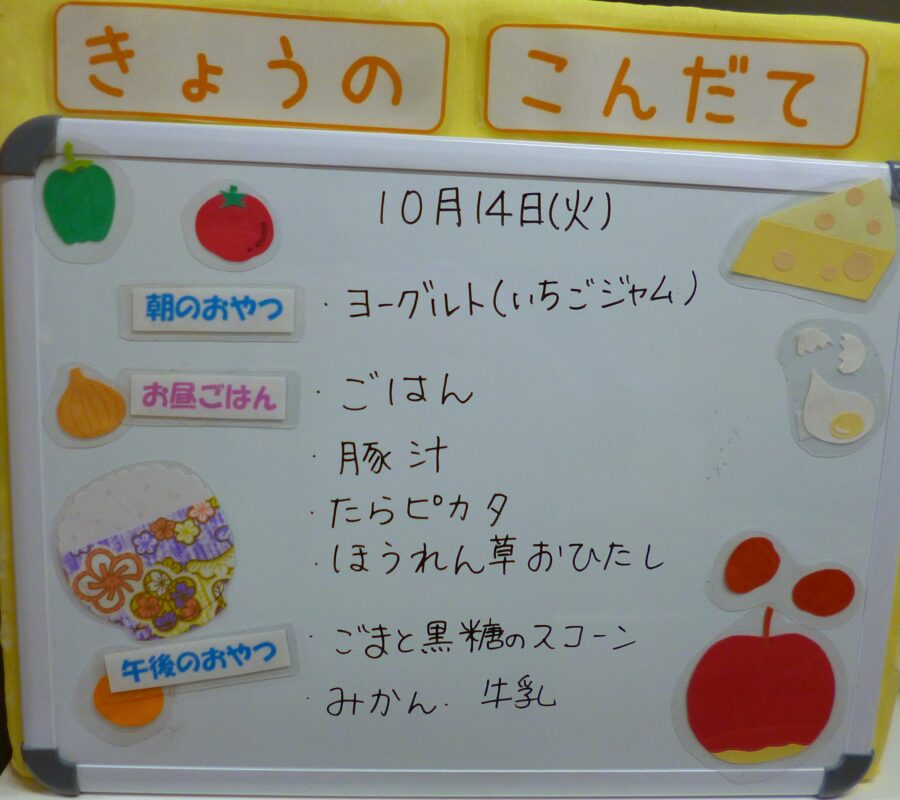 きょうの こんだて
10月14日(火)
朝のおやつ ・ヨーグルト(いちごジャム)
お昼ごはん ・ごはん
・豚汁
・たらピカタ
・ほうれん草おひたし
午後のおやつ ・ごまと黒糖のスコーン
・みかん・牛乳